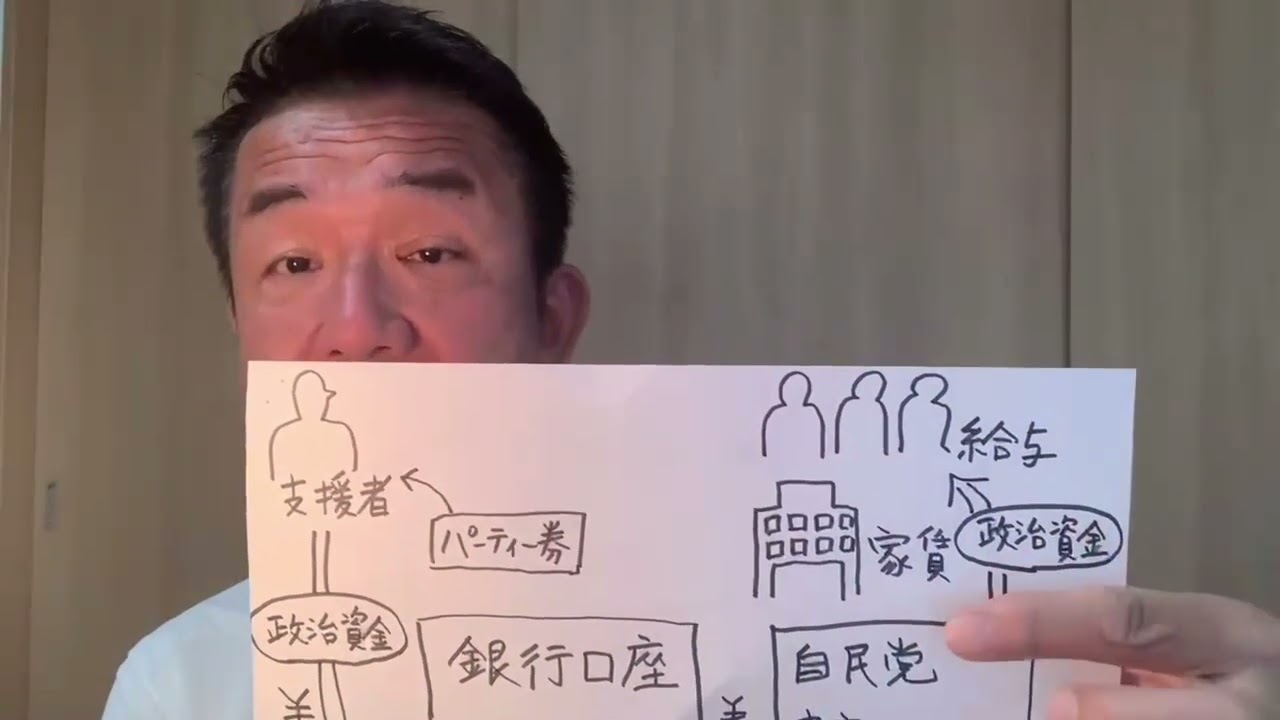 支援者
パーティー券
政治資金
銀行口座
¥
給与
政治資金
家賃
自民党